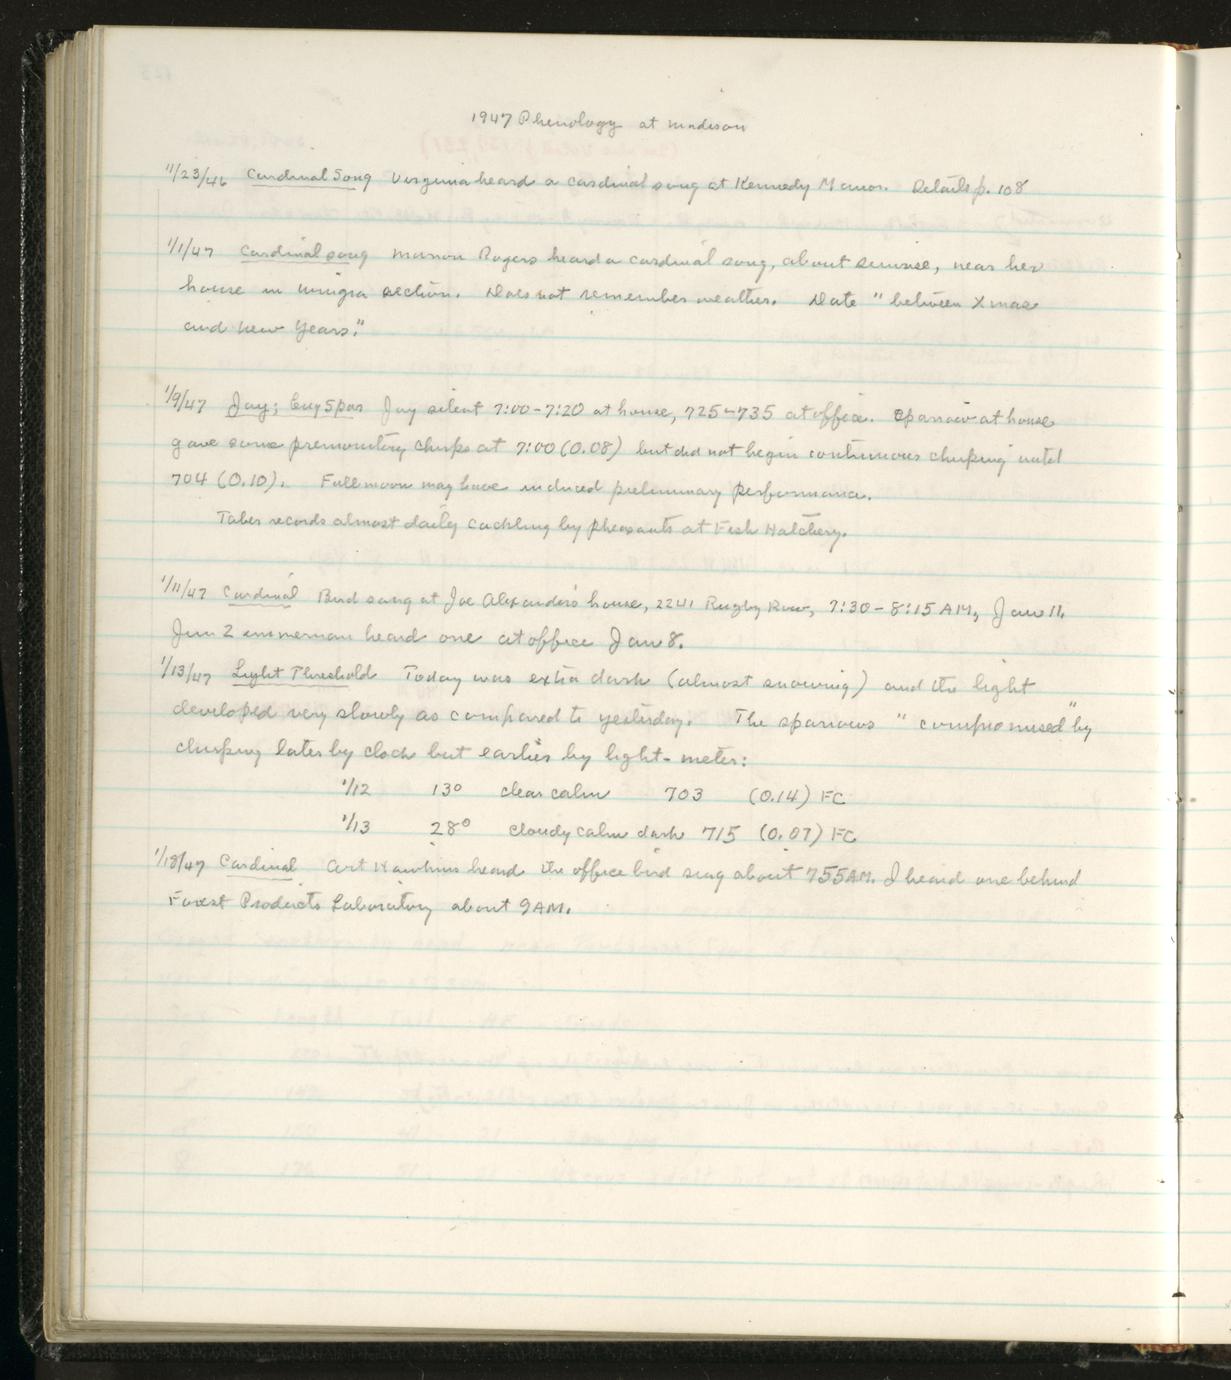 1947 Phenology at Madison
11/23/46 Cardinal Song Virginia heard a cardinal song at Kennedy Manor. Details p. 108
1/1/47 Cardinal song Marion Rogers heard a cardinal song, about sunrise, near her
house in Wingra section. Does not remember weather. Date "between Xmas
and New Years."
1/9/47 Jay; Eng Spar Jay silent 7:00-7:20 at house, 725-735 at office. Sparrow at house
gave some premonitory chirps at 7:00 (0.08) but did not begin continuous chirping until
704 (0.10). Full moon may have induced preliminary performance.
Taber records almost daily cackling by pheasants at Fish Hatchery.
1/11/47 Cardinal Bird sang at Joe Alexander's house, 2241 Rugby Row, 7:30-8:15 AM, Jan 11.
Jim Zimmerman heard one at office Jan 8.
1/13/47 Light Threshold Today was extra dark (almost snowing) and the light
developed very slowly as compared to yesterday. The sparrows "compromised" by
chirping later by clock but earlier by light-meter:
1/12 13° clear calm 703 (0.14) FC
1/13 28° cloudy calm dark 715 (0.07) FC
1/18/47 Cardinal Art Hawkins heard the office bird sing about 755 AM. I heard one behind
Forest Products Laboratory about 9 AM.